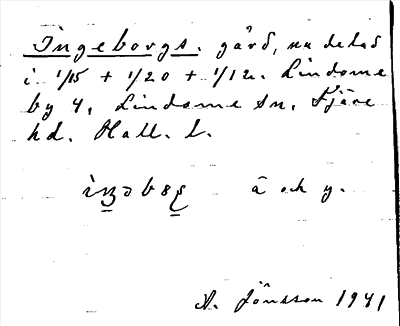 Ingeborgs. gård, nu delad
i 1/15 + 1/20 + 1/12. Lindome
by 4, Lindome sn, Fjäre
hd. Hall. l.
ä och y.
A. Jönsson 1941